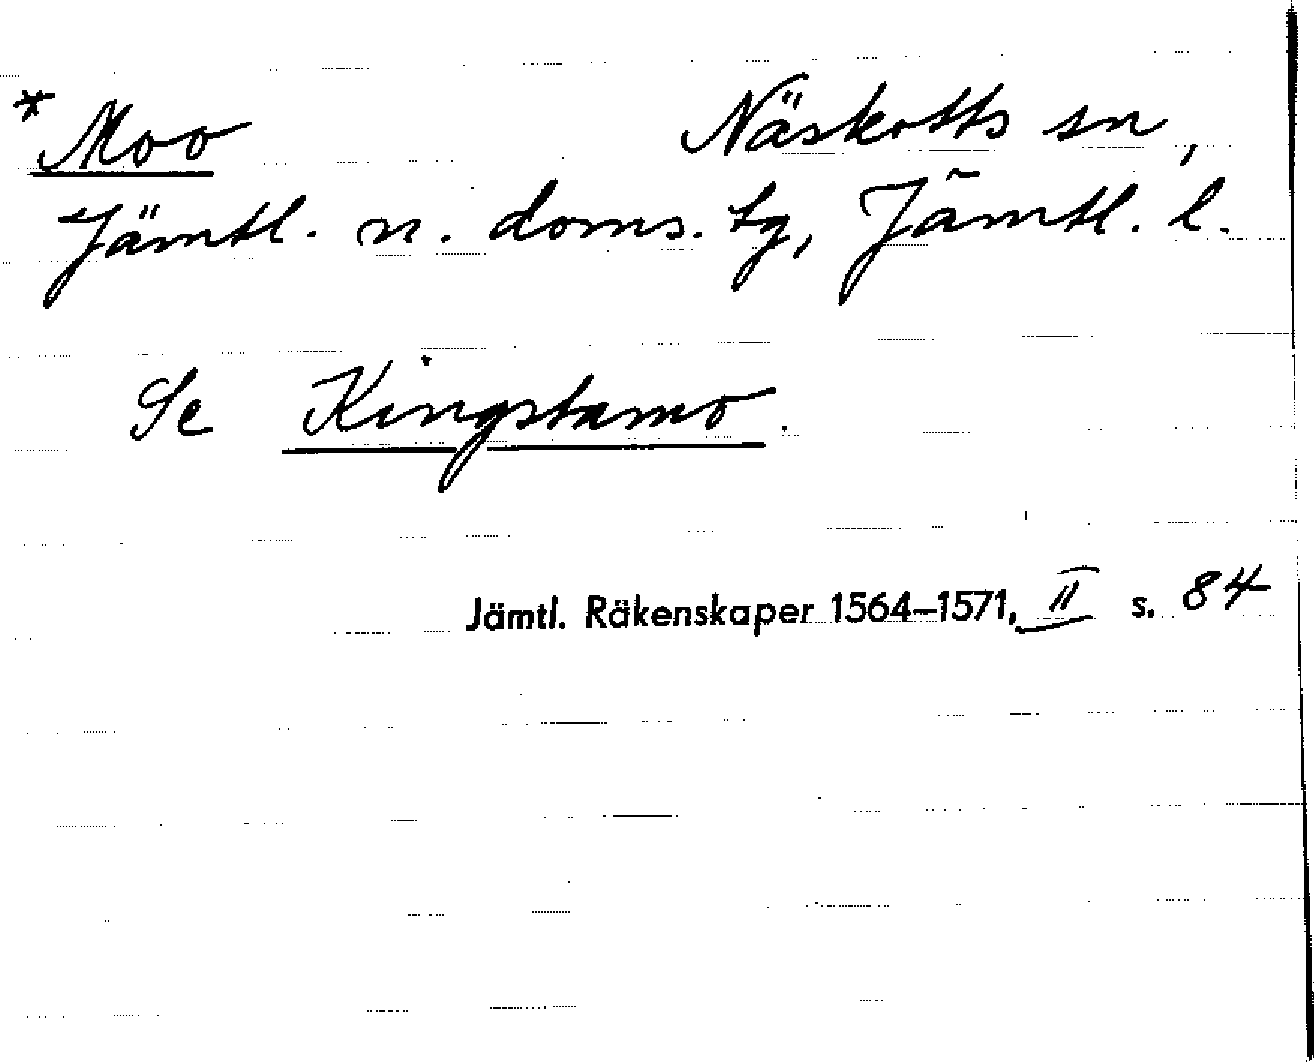 * Moo Näskotts sn,
Jämtl. n. doms. tg, Jämtl. l.
Se Kingstamo.
Jämtl. Räkenskaper 1564–1571, II s. 84